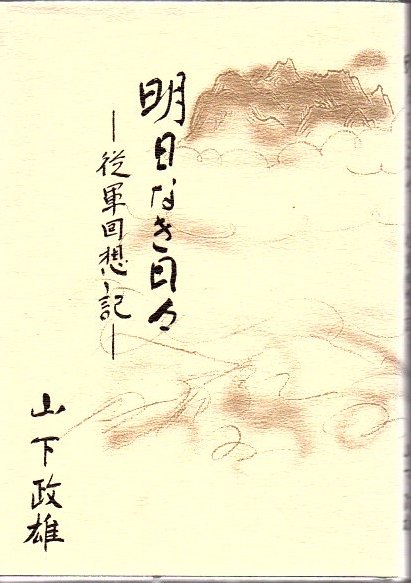 明日なき日々
―従軍回想記―
山下政雄